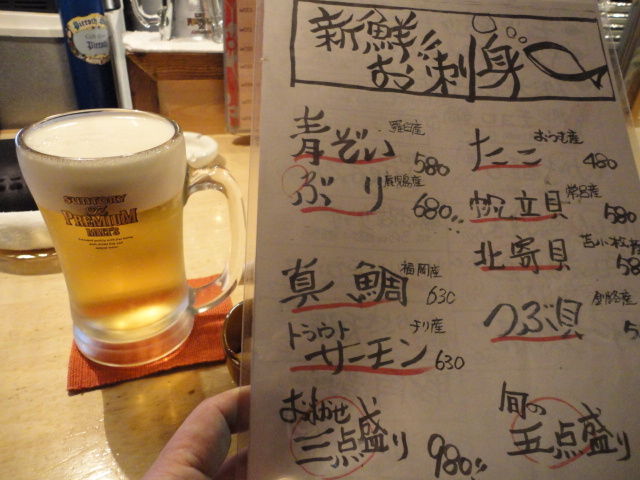 新鮮お刺身
青ぞい 羅臼産 580
ぶり 鹿児島産 680
真鯛 福岡産 630
トラウトサーモン チリ産 630
おまかせ三点盛り 980
たこ おうむ産 480
帆立貝 常呂産 580
北寄貝 苫小牧産 58
つぶ貝 釧路産 5
旬の五点盛り
SUNTORY
The PREMIUM
MALT'S